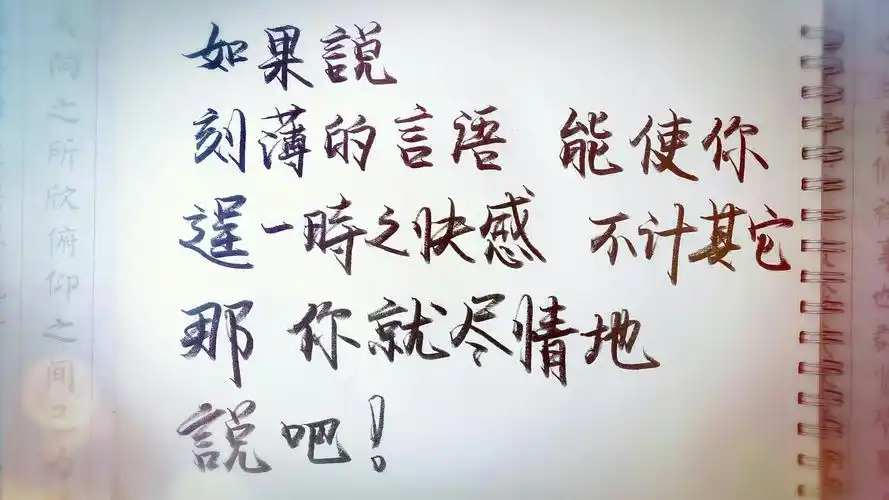 如果説
刻薄的言语 能使你
逞一時之快感 不计其它
那 你就尽情地
説吧!
向之所欣俯仰之间